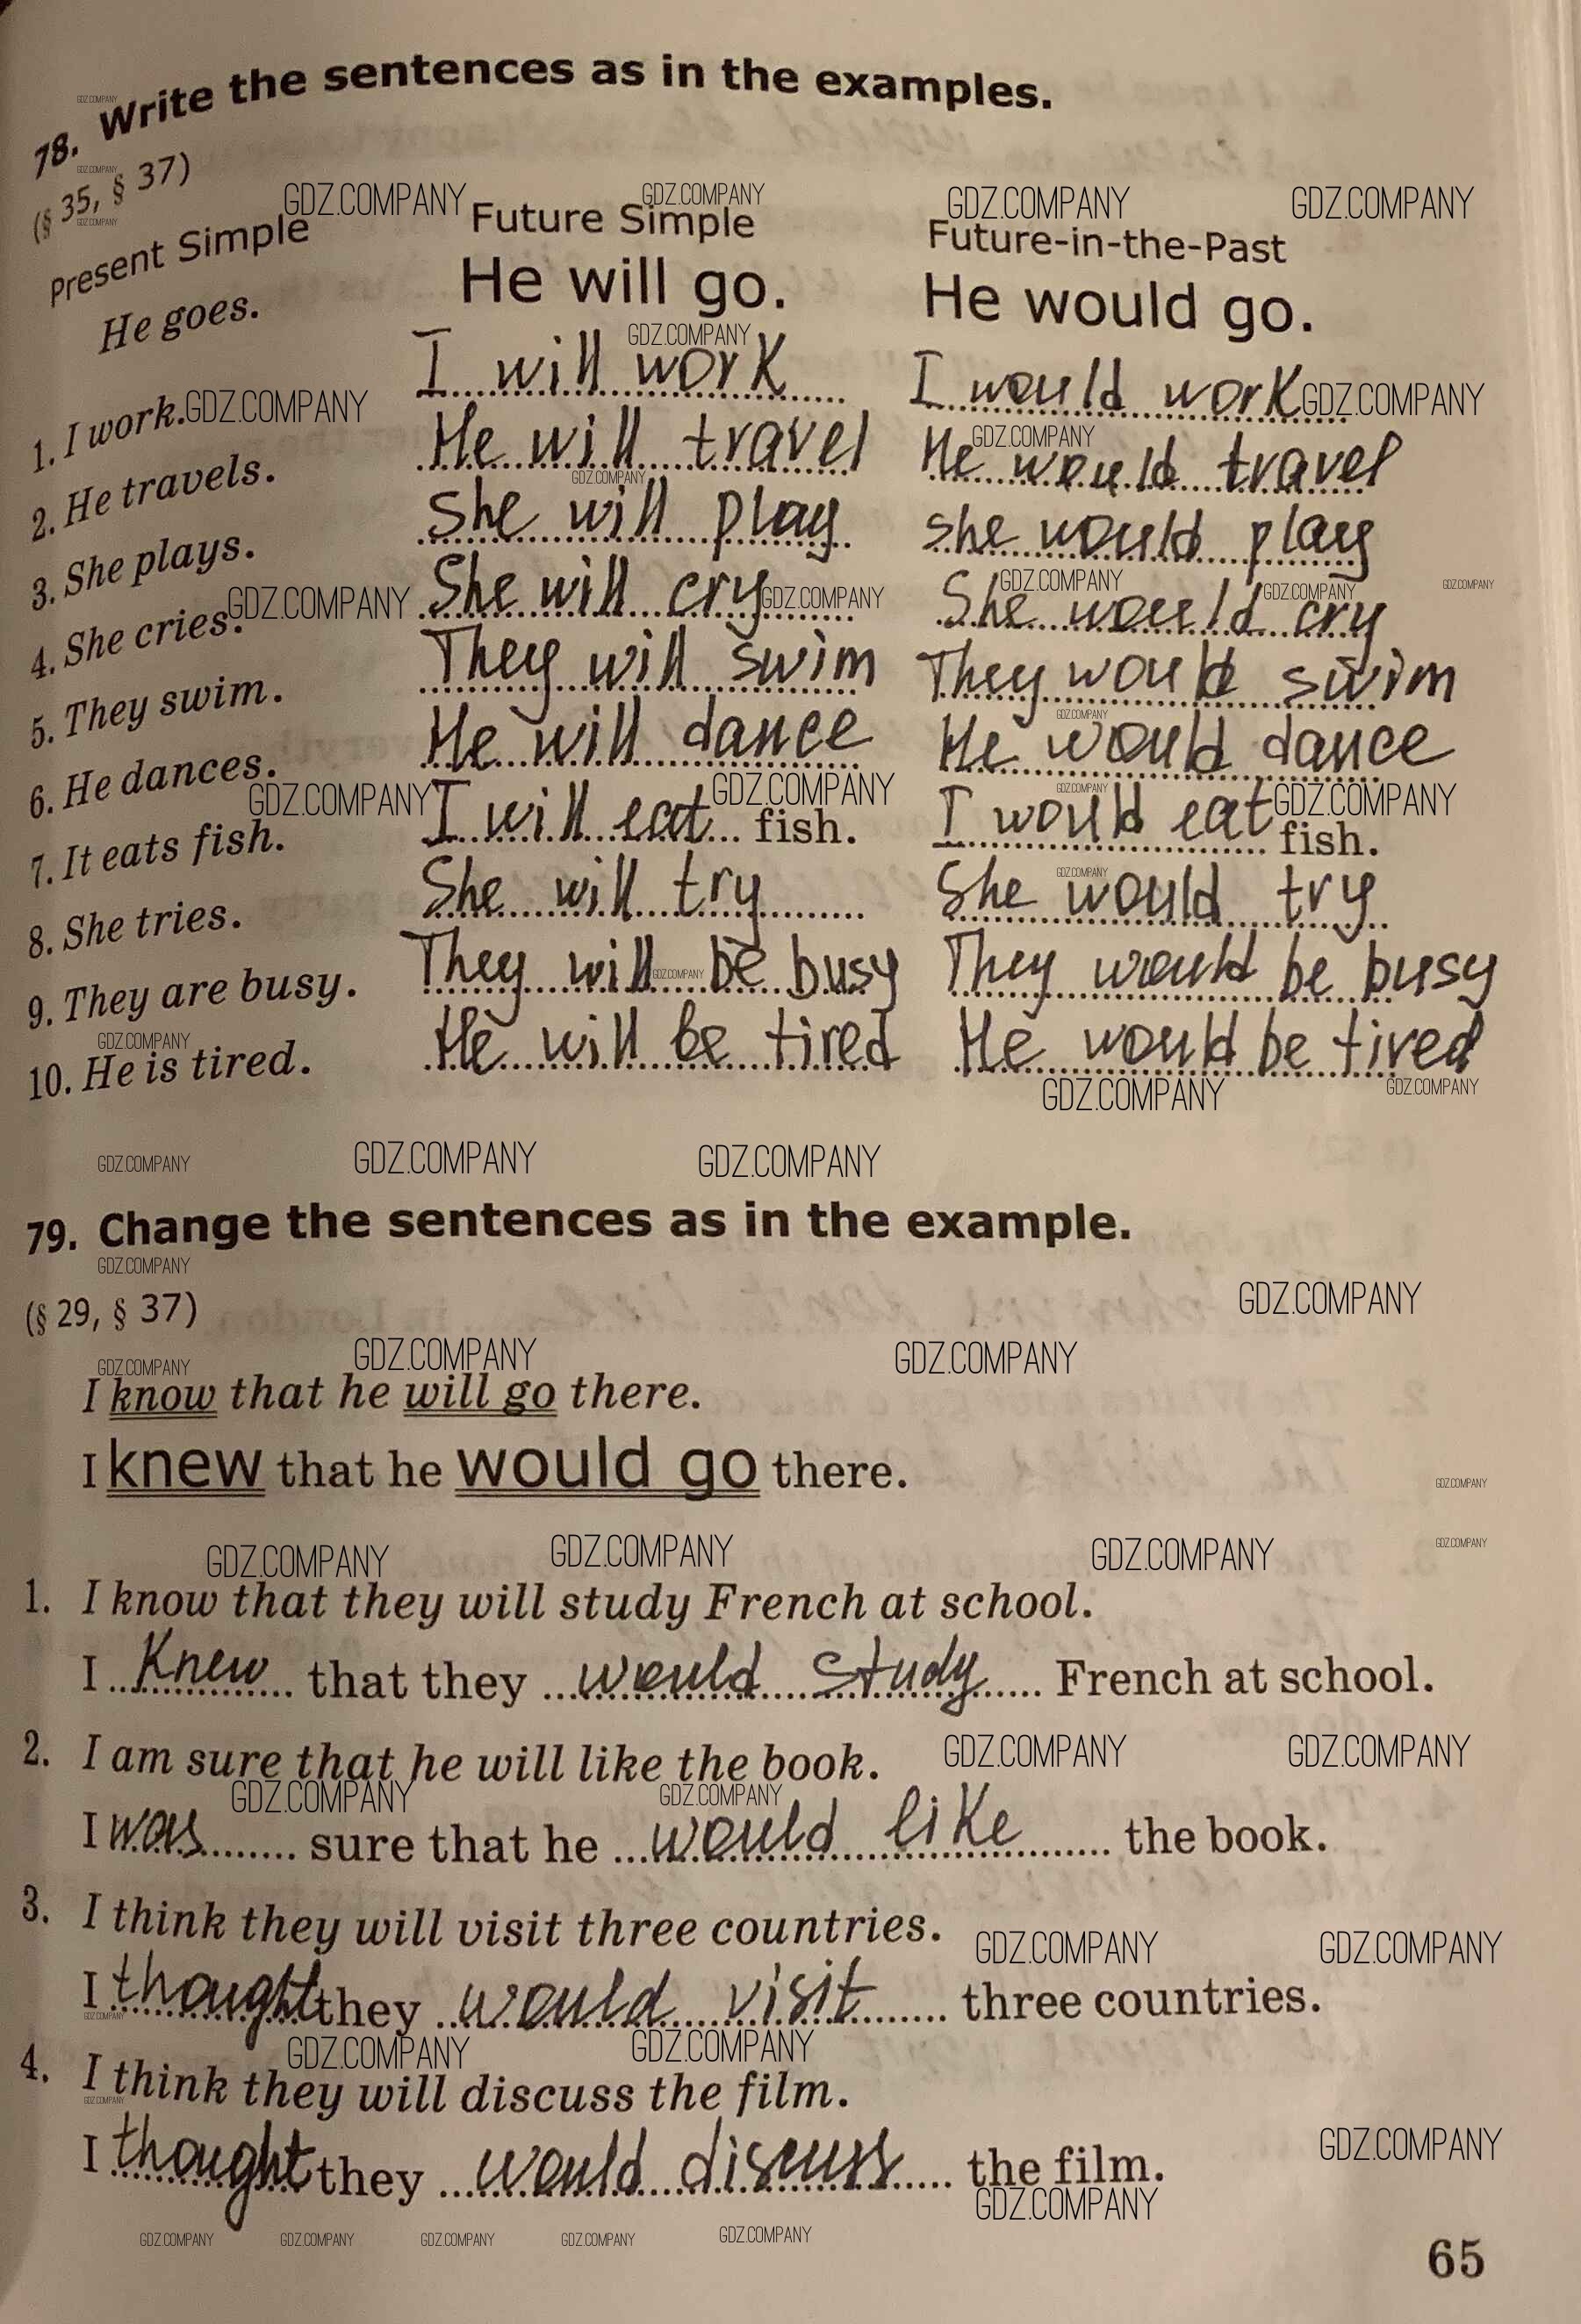 78. Write the sentences as in the examples.
(§ 35, § 37)
Present Simple Future Simple Future-in-the-Past
He goes. He will go. He would go.
1. I work. I will work I would work
2. He travels. He will travel He would travel
3. She plays. She will play she would play
4. She cries. She will cry She would cry
5. They swim. They will swim They would swim
6. He dances. He will dance He would dance
7. It eats fish. I will eat fish. I would eat fish.
8. She tries. She will try She would try
9. They are busy. They will be busy They would be busy
10. He is tired. He will be tired He would be tired
79. Change the sentences as in the example.
(§ 29, § 37)
I know that he will go there.
I knew that he would go there.
1. I know that they will study French at school.
I knew that they would study French at school.
2. I am sure that he will like the book.
I was sure that he would like the book.
3. I think they will visit three countries.
I thought they would visit three countries.
4. I think they will discuss the film.
I thought they would discuss the film.
GDZ.COMPANY
65